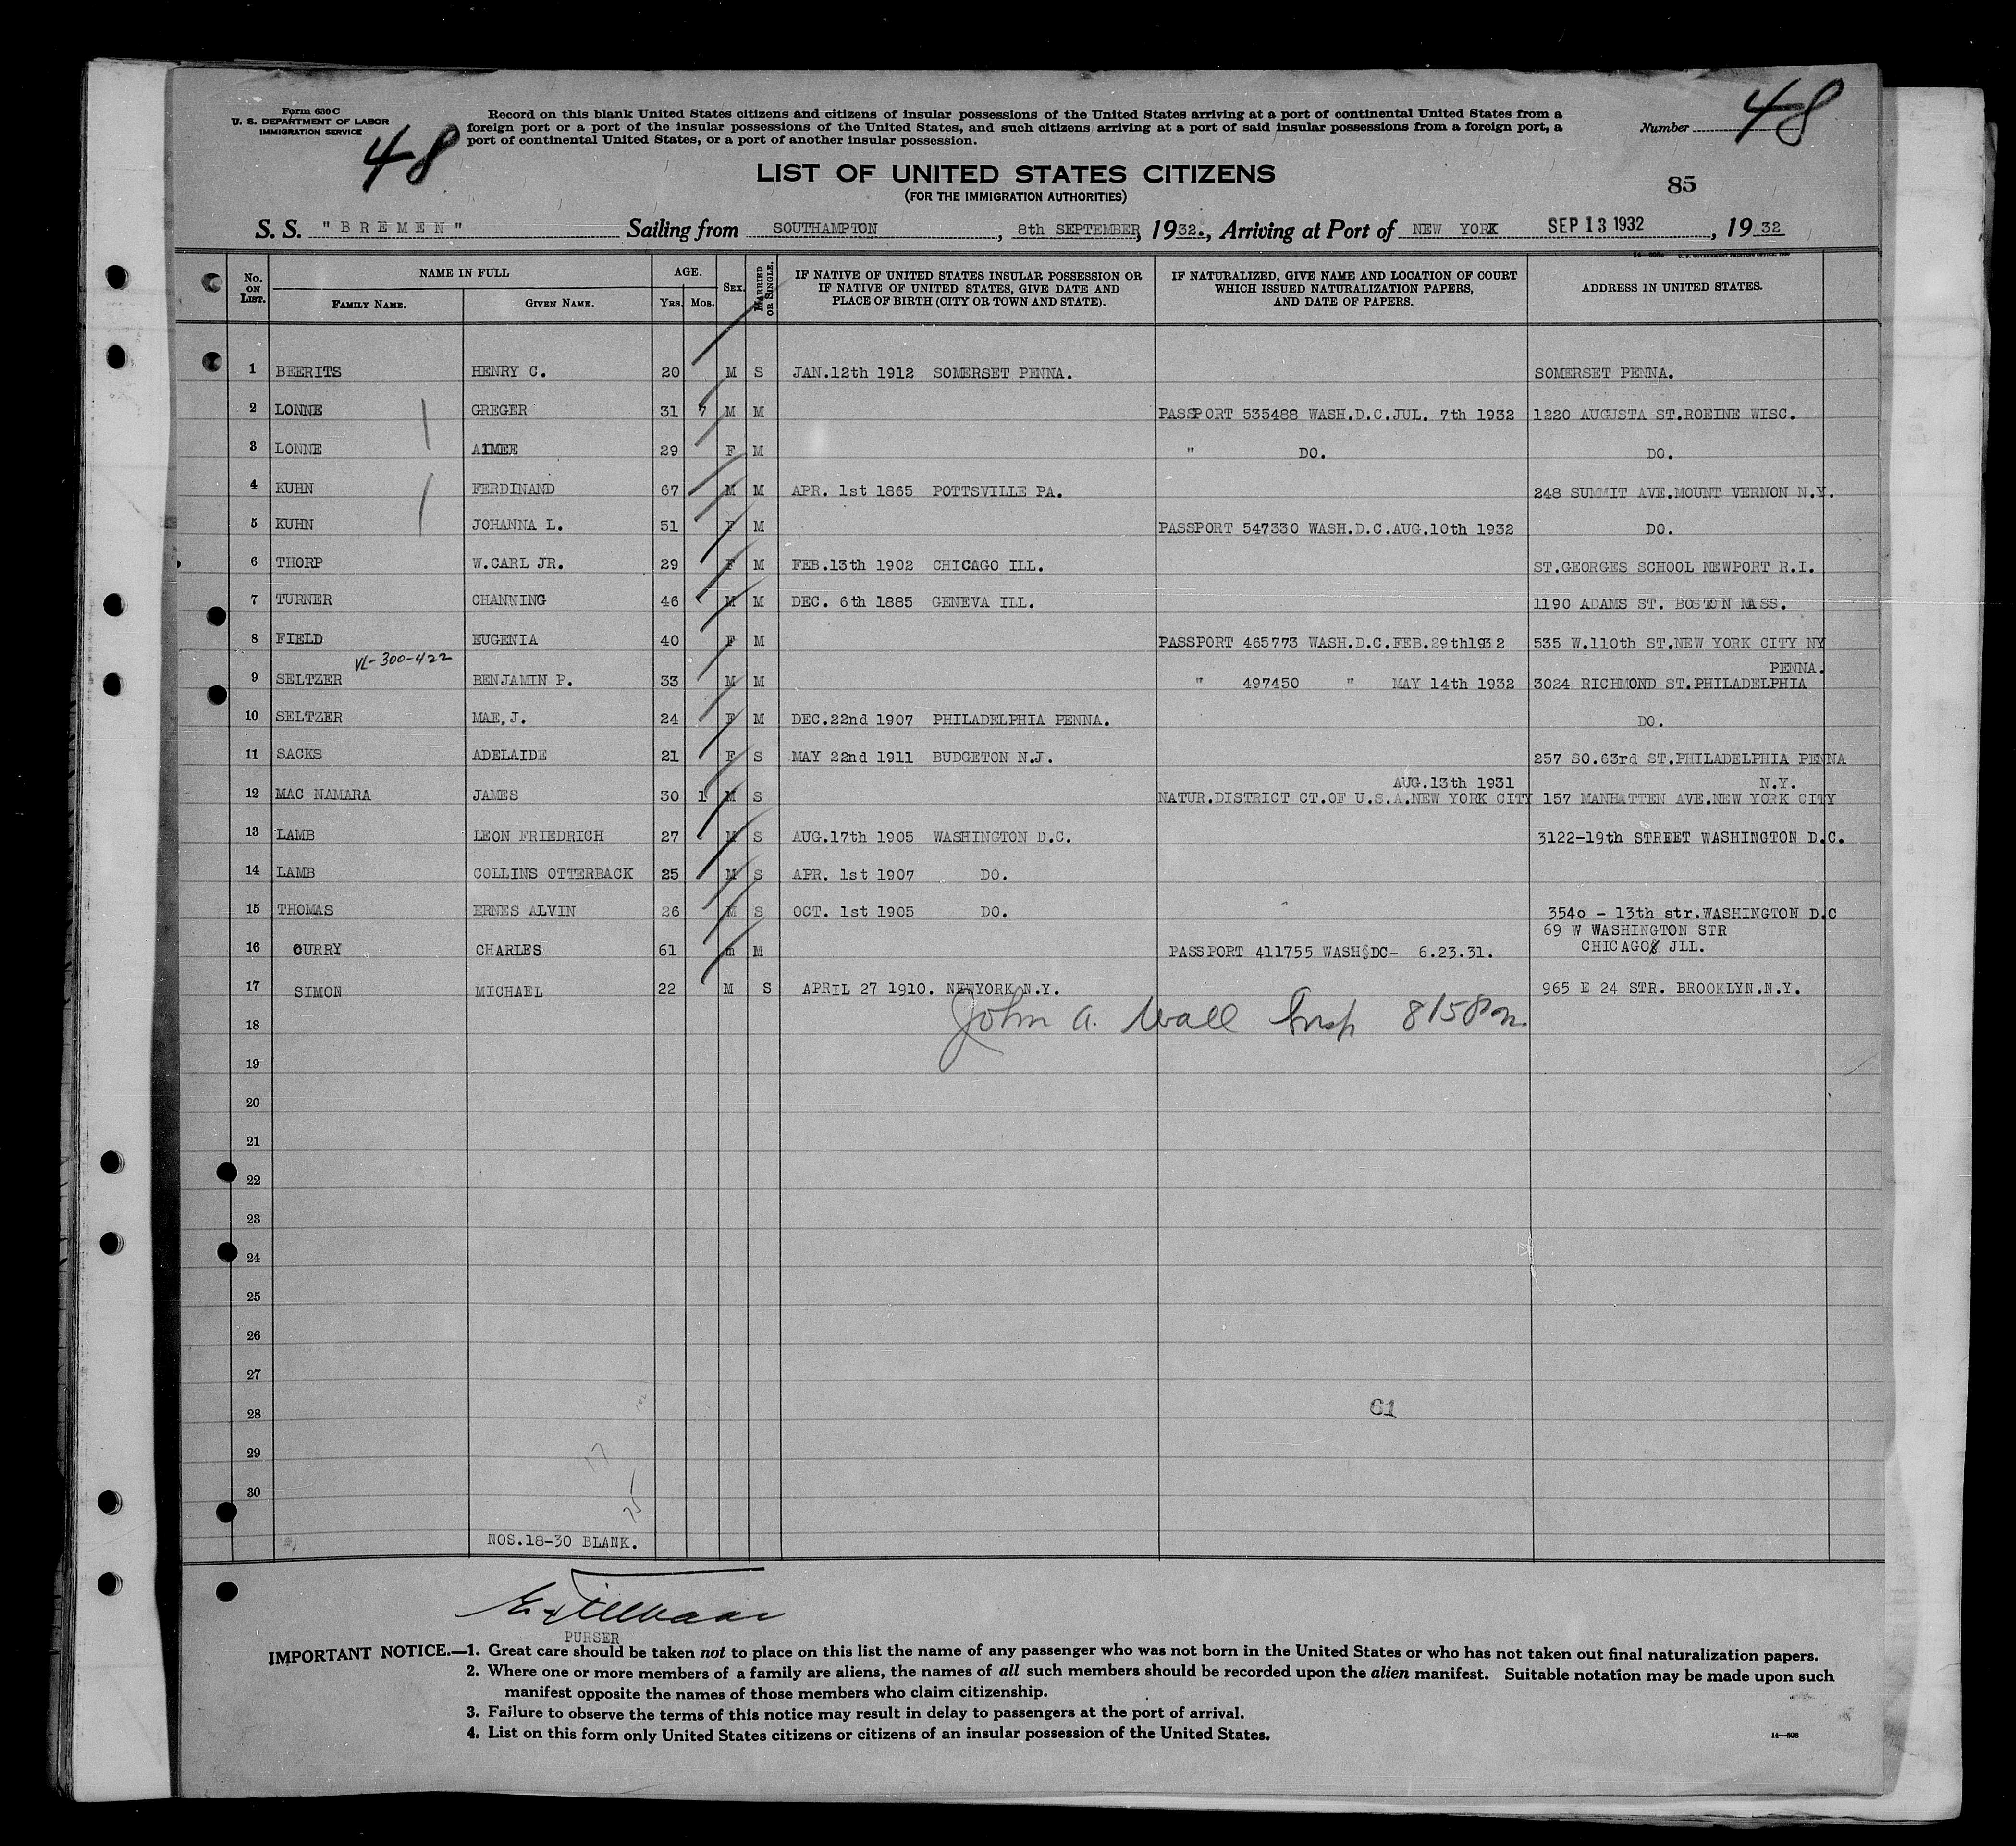 Form 630 C
U. S. DEPARTMENT OF LABOR
IMMIGRATION SERVICE
48
Record on this blank United States citizens and citizens of insular possessions of the United States arriving at a port of continental United States from a
foreign port or a port of the insular possessions of the United States, and such citizens arriving at a port of said insular possessions from a foreign port, a
port of continental United States, or a port of another insular possession.
Number 48
LIST OF UNITED STATES CITIZENS
(FOR THE IMMIGRATION AUTHORITIES)
85
S. S. "BREMEN" Sailing from SOUTHAMPTON, 8th SEPTEMBER, 1932., Arriving at Port of NEW YORK SEP 13 1932, 1932
No. ON LIST. NAME IN FULL FAMILY NAME. GIVEN NAME. AGE. YRS. MOS. SEX. MARRIED OR SINGLE. IF NATIVE OF UNITED STATES INSULAR POSSESSION OR IF NATIVE OF UNITED STATES, GIVE DATE AND PLACE OF BIRTH (CITY OR TOWN AND STATE). IF NATURALIZED, GIVE NAME AND LOCATION OF COURT WHICH ISSUED NATURALIZATION PAPERS, AND DATE OF PAPERS. ADDRESS IN UNITED STATES.
1 BEERITS HENRY C. 20 M S JAN.12th 1912 SOMERSET PENNA. SOMERSET PENNA.
2 LONNE GREGER 31 7 M M PASSPORT 535488 WASH.D.C.JUL. 7th 1932 1220 AUGUSTA ST.ROEINE WISC.
3 LONNE AIMEE 29 F M " DO. DO.
4 KUHN FERDINAND 67 M M APR. 1st 1865 POTTSVILLE PA. 248 SUMMIT AVE.MOUNT VERNON N.Y.
5 KUHN JOHANNA L. 51 F M PASSPORT 547330 WASH.D.C.AUG.10th 1932 DO.
6 THORP W.CARL JR. 29 F M FEB.13th 1902 CHICAGO ILL. ST.GEORGES SCHOOL NEWPORT R.I.
7 TURNER CHANNING 46 M M DEC. 6th 1885 GENEVA ILL. 1190 ADAMS ST. BOSTON MASS.
8 FIELD EUGENIA 40 F M PASSPORT 465773 WASH.D.C.FEB.29th1932 535 W.110th ST.NEW YORK CITY NY
VL-300-422 PENNA.
9 SELTZER BENJAMIN P. 33 M M " 497450 " MAY 14th 1932 3024 RICHMOND ST.PHILADELPHIA
10 SELTZER MAE,J. 24 F M DEC.22nd 1907 PHILADELPHIA PENNA. DO.
11 SACKS ADELAIDE 21 F S MAY 22nd 1911 BUDGETON N.J. 257 SO.63rd ST.PHILADELPHIA PENNA
AUG.13th 1931 N.Y.
12 MAC NAMARA JAMES 30 1 M S NATUR.DISTRICT CT.OF U.S.A.NEW YORK CITY 157 MANHATTEN AVE.NEW YORK CITY
13 LAMB LEON FRIEDRICH 27 M S AUG.17th 1905 WASHINGTON D.C. 3122-19th STREET WASHINGTON D.C.
14 LAMB COLLINS OTTERBACK 25 M S APR. 1st 1907 DO.
15 THOMAS ERNES ALVIN 26 M S OCT. 1st 1905 DO. 354o - 13th str.WASHINGTON D.C
69 W WASHINGTON STR
16 CURRY CHARLES 61 m M PASSPORT 411755 WASH DC- 6.23.31. CHICAGO JLL.
17 SIMON MICHAEL 22 M S APRIL 27 1910. NEWYORK N.Y. 965 E 24 STR. BROOKLYN.N.Y.
18 John A. Wall Insp 815 Pm.
19
20
21
22
23
24
25
26
27
28 61
29 17
30 25
NOS.18-30 BLANK.
PURSER
IMPORTANT NOTICE.—1. Great care should be taken not to place on this list the name of any passenger who was not born in the United States or who has not taken out final naturalization papers.
2. Where one or more members of a family are aliens, the names of all such members should be recorded upon the alien manifest. Suitable notation may be made upon such
manifest opposite the names of those members who claim citizenship.
3. Failure to observe the terms of this notice may result in delay to passengers at the port of arrival.
4. List on this form only United States citizens or citizens of an insular possession of the United States.
14—606